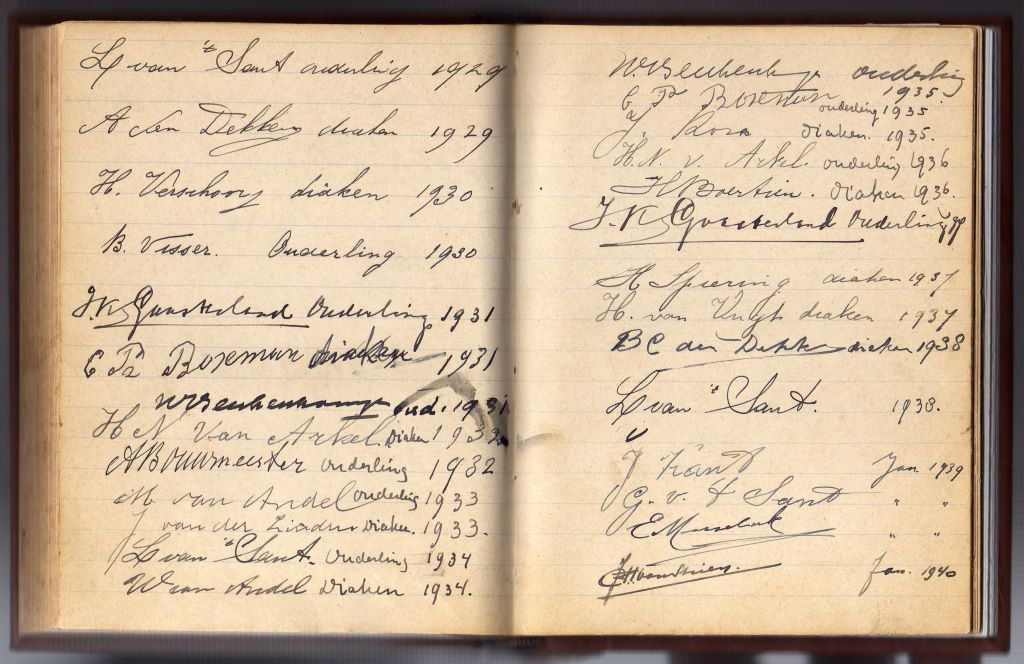 L van 't Sant ouderling 1929
A den Dekker diaken 1929
H. Verschoor diaken 1930
B. Visser. Ouderling 1930
J.K. Gaasterland Ouderling 1931
C Pz Boxman diaken 1931
oud. 1931
H N Van Arkel Diaken 1932
A Bouwmeester ouderling 1932
M van Andel ouderling 1933
J van der Linden Diaken. 1933.
L van 't Sant. Ouderling 1934
W van Andel Diaken 1934.
ouderling 1935.
C Pz Boxman ouderling 1935
diaken. 1935.
H. N. v. Arkel. ouderling 1936
H Boertien. diaken 1936.
J. K. Gaasterland Ouderling
A Spiering diaken 1937
H. van Vugt diaken 1937
B C den Dekker diaken 1938
L van 't Sant. 1938.
J Kant Jan. 1939
G. v. 't Sant " "
" "
Jan. 1940